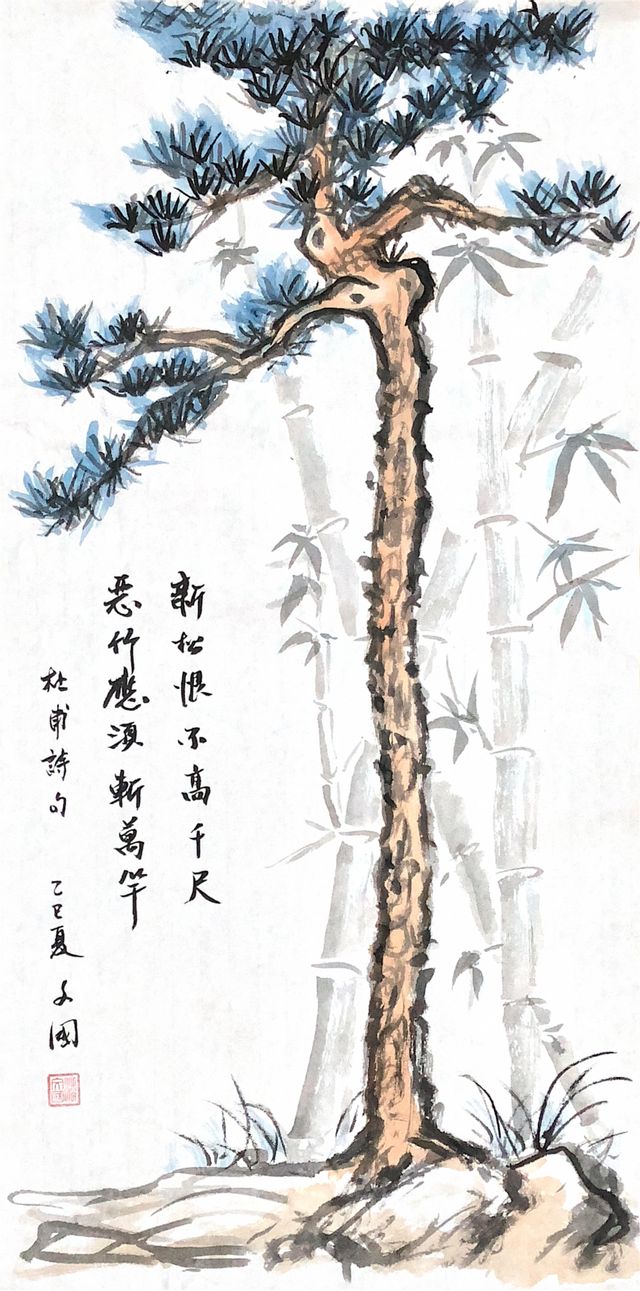 新松恨不高千尺
惡竹應須斬萬竿
杜甫詩句
乙巳夏 文國